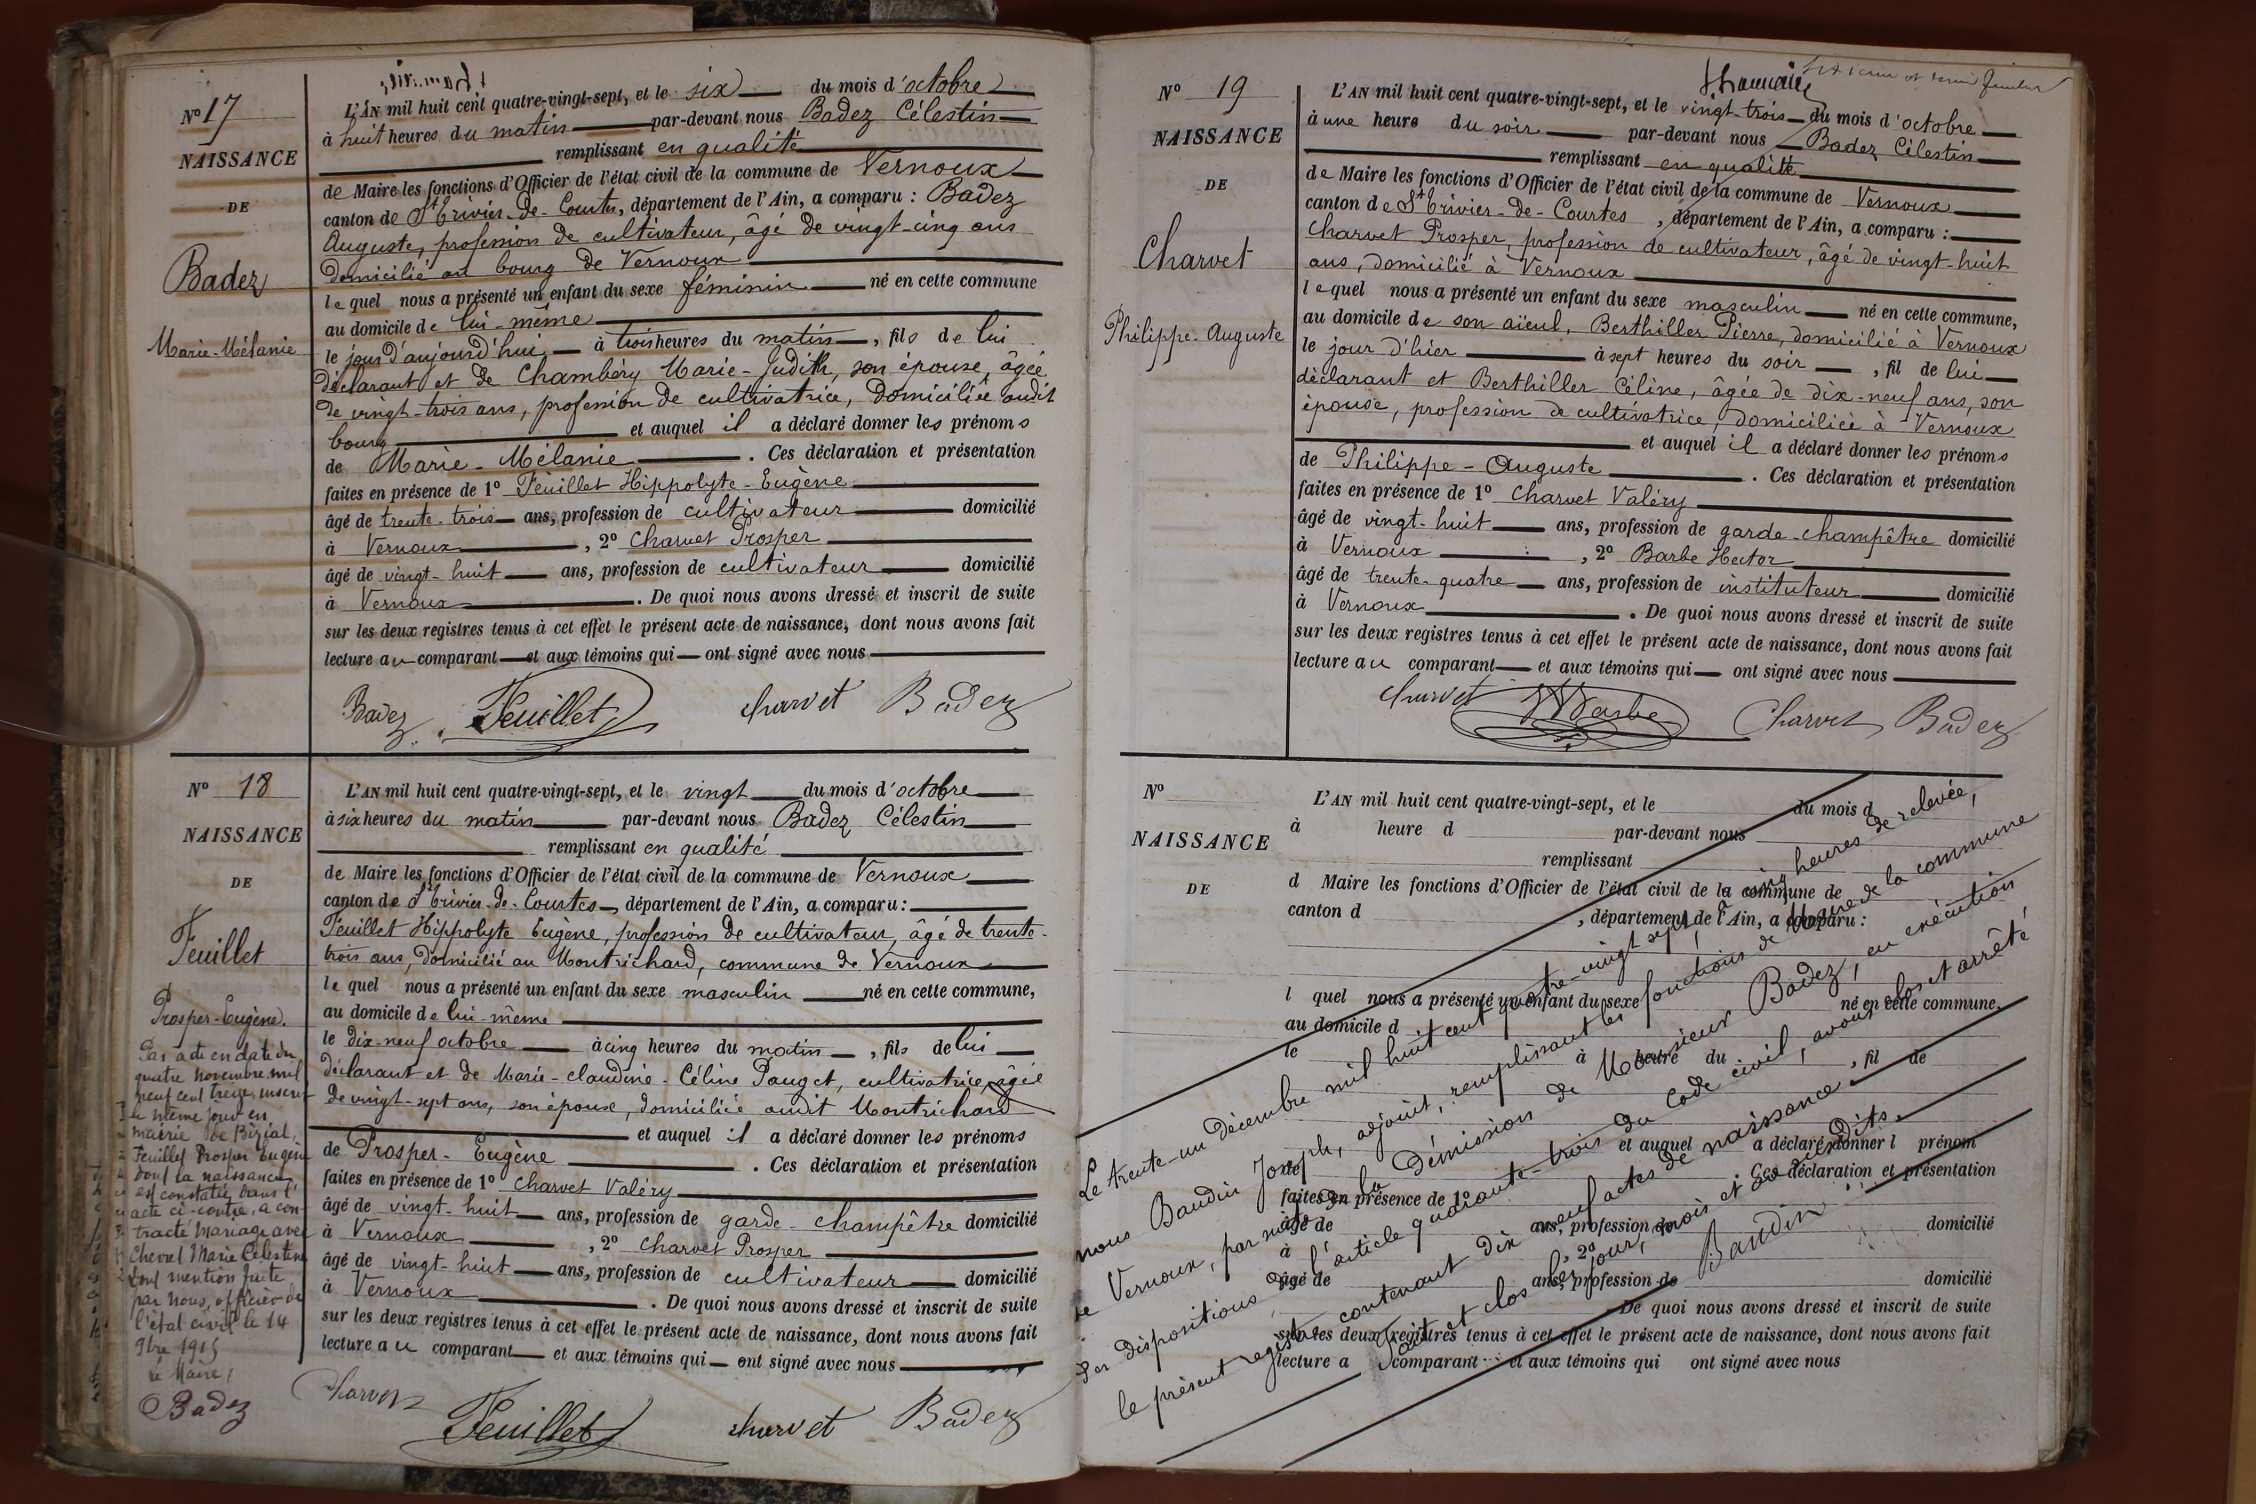 No 17
NAISSANCE
DE
Badez
Marie-Mélanie
L'AN mil huit cent quatre-vingt-sept, et le six du mois d'octobre
à huit heures du matin par-devant nous Badez Célestin
remplissant en qualité
de Maire les fonctions d'Officier de l'état civil de la commune de Vernoux
canton de St Trivier-de-Courtes, département de l'Ain, a comparu : Badez
Auguste, profession de cultivateur, âgé de vingt-cinq ans
domicilié au bourg de Vernoux
lequel nous a présenté un enfant du sexe féminin né en cette commune
au domicile de lui-même
le jour d'aujourd'hui à trois heures du matin, fils de lui
déclarant et de Chambéry Marie-Judith, son épouse, âgée
de vingt-trois ans, profession de cultivatrice, domiciliée audit
bourg et auquel il a déclaré donner les prénoms
de Marie-Mélanie. Ces déclaration et présentation
faites en présence de 1° Feuillet Hippolyte-Eugène
âgé de trente-trois ans, profession de cultivateur domicilié
à Vernoux, 2° Charvet Prosper
âgé de vingt-huit ans, profession de cultivateur domicilié
à Vernoux. De quoi nous avons dressé et inscrit de suite
sur les deux registres tenus à cet effet le présent acte de naissance, dont nous avons fait
lecture au comparant et aux témoins qui ont signé avec nous
Badez Feuillet Charvet Badez
No 18
NAISSANCE
DE
Feuillet
Prosper-Eugène.
Par acte en date du
quatre novembre mil
neuf cent treize inscrit
le même jour en
mairie de Biziat,
Feuillet Prosper Eugène
dont la naissance
est constatée dans l'
acte ci-contre, a con-
tracté mariage avec
Chevrel Marie Célestine
Dont mention faite
par nous, officier de
l'état civil le 14
9bre 1915
Le Maire,
Badez
L'AN mil huit cent quatre-vingt-sept, et le vingt du mois d'octobre
à six heures du matin par-devant nous Badez Célestin
remplissant en qualité
de Maire les fonctions d'Officier de l'état civil de la commune de Vernoux
canton de St Trivier-de-Courtes, département de l'Ain, a comparu :
Feuillet Hippolyte Eugène, profession de cultivateur, âgé de trente-
trois ans, domicilié au Montrichard, commune de Vernoux
lequel nous a présenté un enfant du sexe masculin né en cette commune,
au domicile de lui-même
le dix-neuf octobre à cinq heures du matin, fils de lui
déclarant et de Marie-Claudine-Céline Pauget, cultivatrice, âgée
de vingt-sept ans, son épouse, domiciliée audit Montrichard
et auquel il a déclaré donner les prénoms
de Prosper-Eugène. Ces déclaration et présentation
faites en présence de 1° Charvet Valéry
âgé de vingt-huit ans, profession de garde-champêtre domicilié
à Vernoux, 2° Charvet Prosper
âgé de vingt-huit ans, profession de cultivateur domicilié
à Vernoux. De quoi nous avons dressé et inscrit de suite
sur les deux registres tenus à cet effet le présent acte de naissance, dont nous avons fait
lecture au comparant et aux témoins qui ont signé avec nous
Charvet Feuillet Charvet Badez
No 19
NAISSANCE
DE
Charvet
Philippe-Auguste
L'AN mil huit cent quatre-vingt-sept, et le vingt-trois du mois d'octobre
à une heure du soir par-devant nous Badez Célestin
remplissant en qualité
de Maire les fonctions d'Officier de l'état civil de la commune de Vernoux
canton de St Trivier-de-Courtes, département de l'Ain, a comparu :
Charvet Prosper, profession de cultivateur, âgé de vingt-huit
ans, domicilié à Vernoux
lequel nous a présenté un enfant du sexe masculin né en cette commune,
au domicile de son aïeul, Berthiller Pierre, domicilié à Vernoux
le jour d'hier à sept heures du soir, fil de lui
déclarant et Berthiller Céline, âgée de dix-neuf ans, son
épouse, profession de cultivatrice, domiciliée à Vernoux
et auquel il a déclaré donner les prénoms
de Philippe-Auguste. Ces déclaration et présentation
faites en présence de 1° Charvet Valéry
âgé de vingt-huit ans, profession de garde-champêtre domicilié
à Vernoux, 2° Barbe Hector
âgé de trente-quatre ans, profession de instituteur domicilié
à Vernoux. De quoi nous avons dressé et inscrit de suite
sur les deux registres tenus à cet effet le présent acte de naissance, dont nous avons fait
lecture au comparant et aux témoins qui ont signé avec nous
Charvet Barbe Charvet Badez
No
NAISSANCE
DE
L'AN mil huit cent quatre-vingt-sept, et le du mois d
à heure d par-devant nous
remplissant
d Maire les fonctions d'Officier de l'état civil de la commune de
canton d , département de l'Ain, a comparu :
l quel nous a présenté un enfant du sexe né en cette commune,
au domicile d
le à heure du , fil de
et auquel a déclaré donner l prénom
de . Ces déclaration et présentation
faites en présence de 1°
âgé de ans, profession de domicilié
à , 2°
âgé de ans, profession de domicilié
à . De quoi nous avons dressé et inscrit de suite
sur les deux registres tenus à cet effet le présent acte de naissance, dont nous avons fait
lecture a comparant et aux témoins qui ont signé avec nous
Le trente-un décembre mil huit cent quatre-vingt sept, à cinq heures de relevée,
nous Baudin Joseph, adjoint, remplissant les fonctions de Maire de la commune
de Vernoux, par suite de la démission de Monsieur Badez, en exécution
des dispositions de l'article quarante-trois du Code civil, avons clos et arrêté
le présent registre contenant dix neuf actes de naissance.
Fait et clos les jour, mois et an susdits.
Baudin